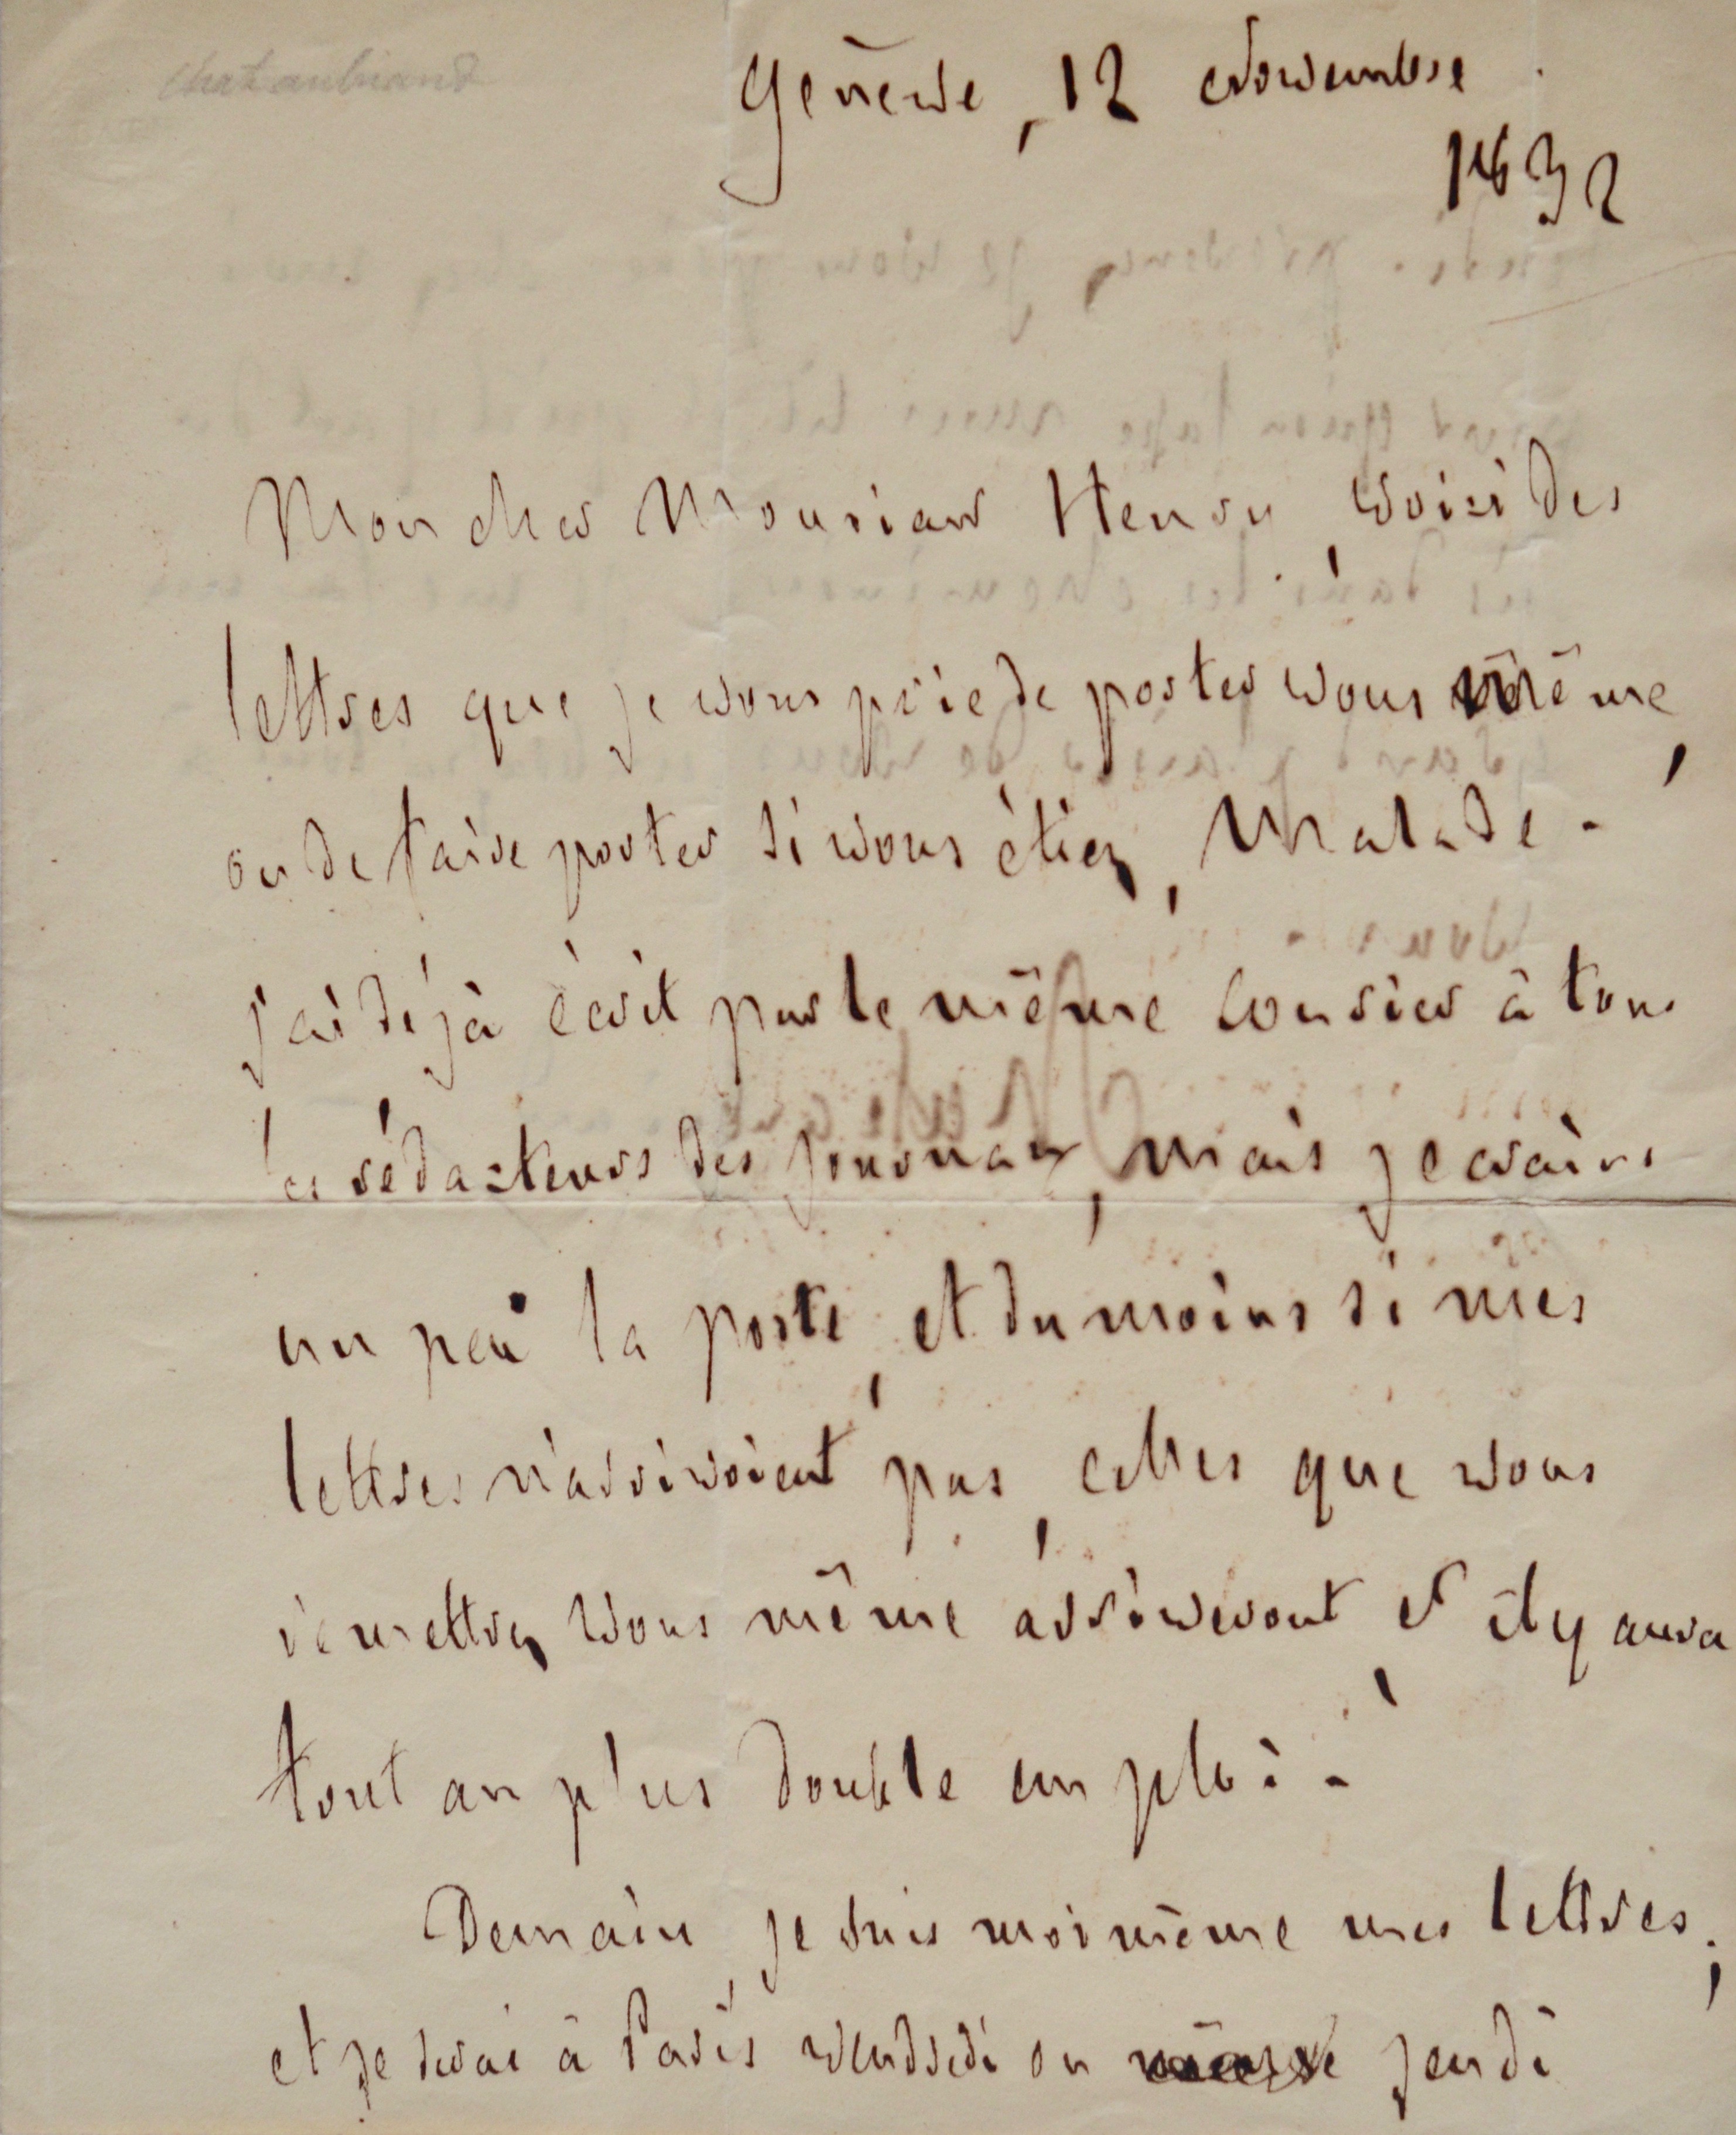 Chateaubriand
Genève, 12 Novembre
1832
Mon cher Monsieur Henry, voici des
lettres que je vous prie de porter vous même,
ou de faire porter si vous étiez malade.
j'ai déjà écrit par le même courier à tous
les rédacteurs des journaux, mais je crains
un peu la poste, et du moins si mes
lettres n'arrivoient pas, celles que vous
remettrez vous même arriveront, et il y aura
tout au plus double emploi.
Demain, je suis moi même mes lettres;
et je serai à Paris vendredi ou jeudi